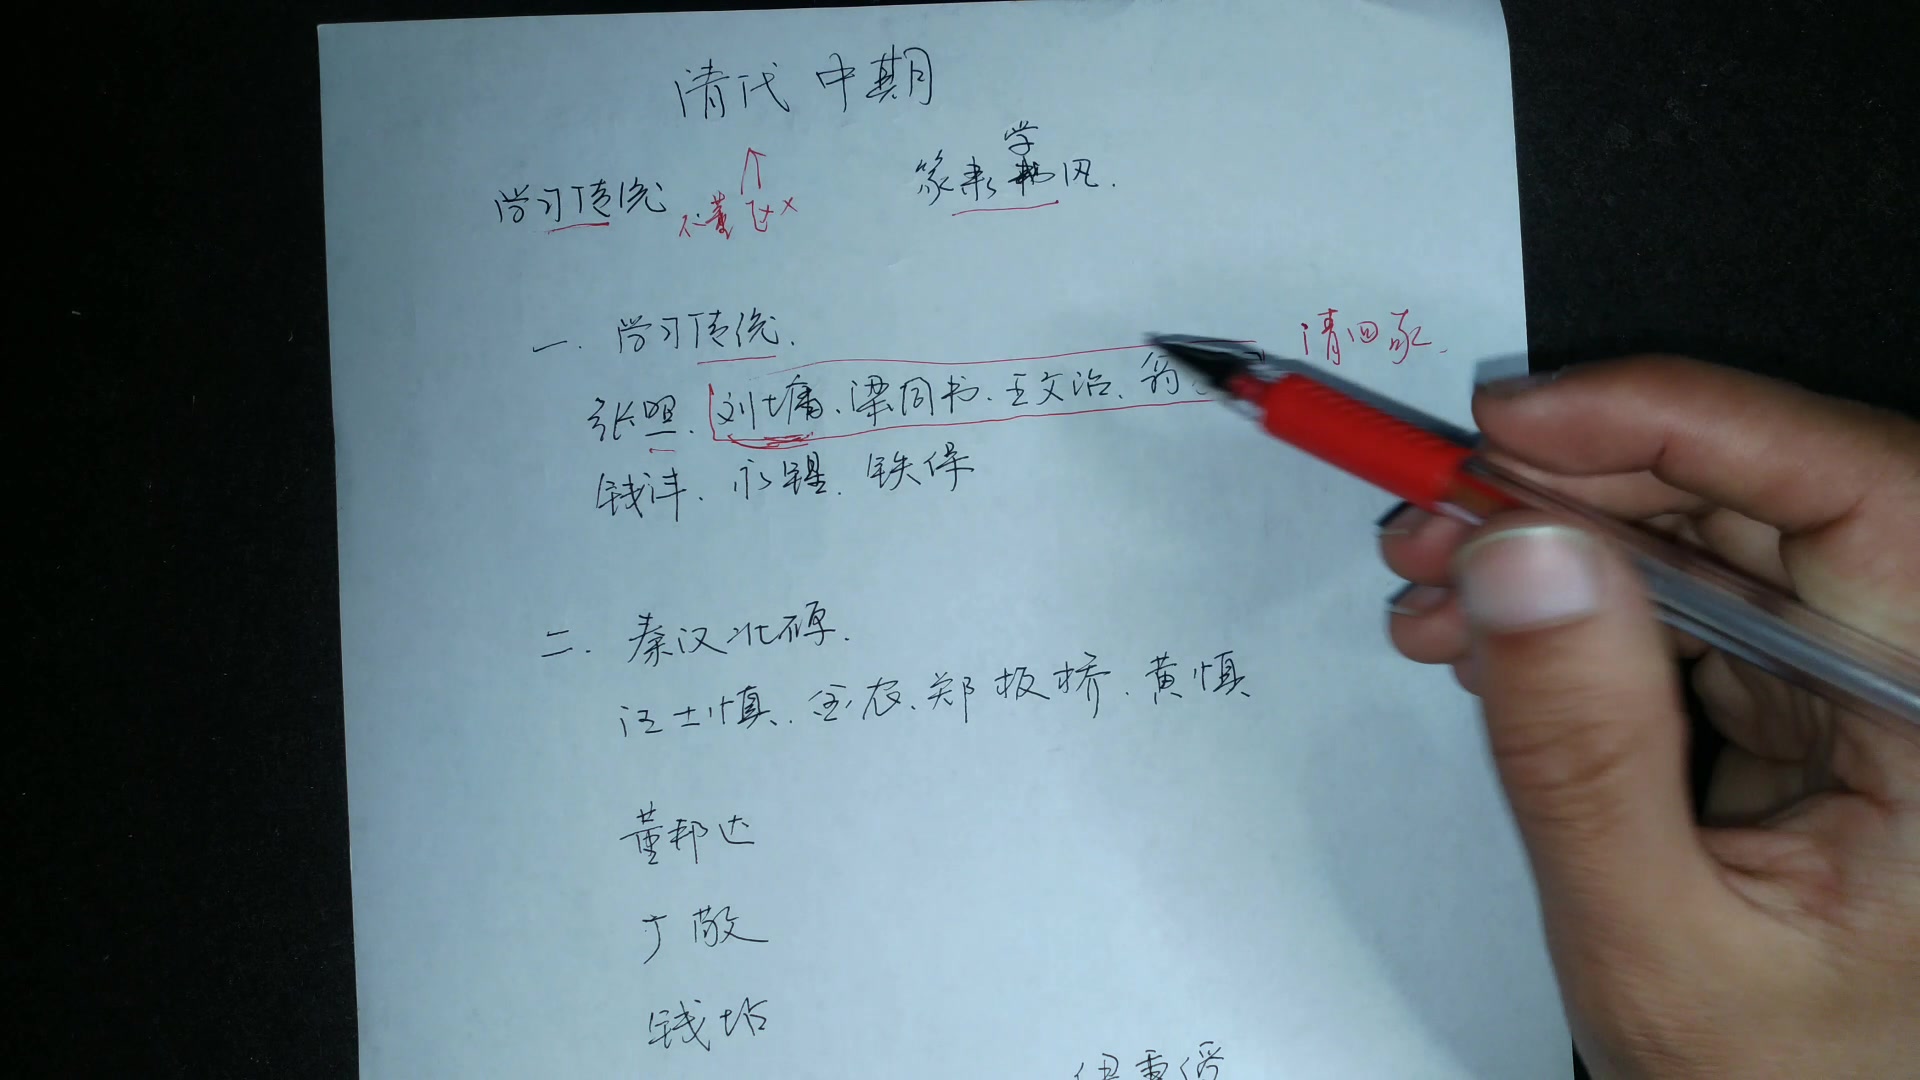 清代中期
学习传统
不董 赵 ×
篆隶学风.
一. 学习传统.
张照. 刘墉、梁同书、王文治、翁
清四家.
钱沣、永瑆、铁保
二. 秦汉北碑.
汪士慎、金农、郑板桥、黄慎
董邦达
丁敬
钱坫
伊秉绶